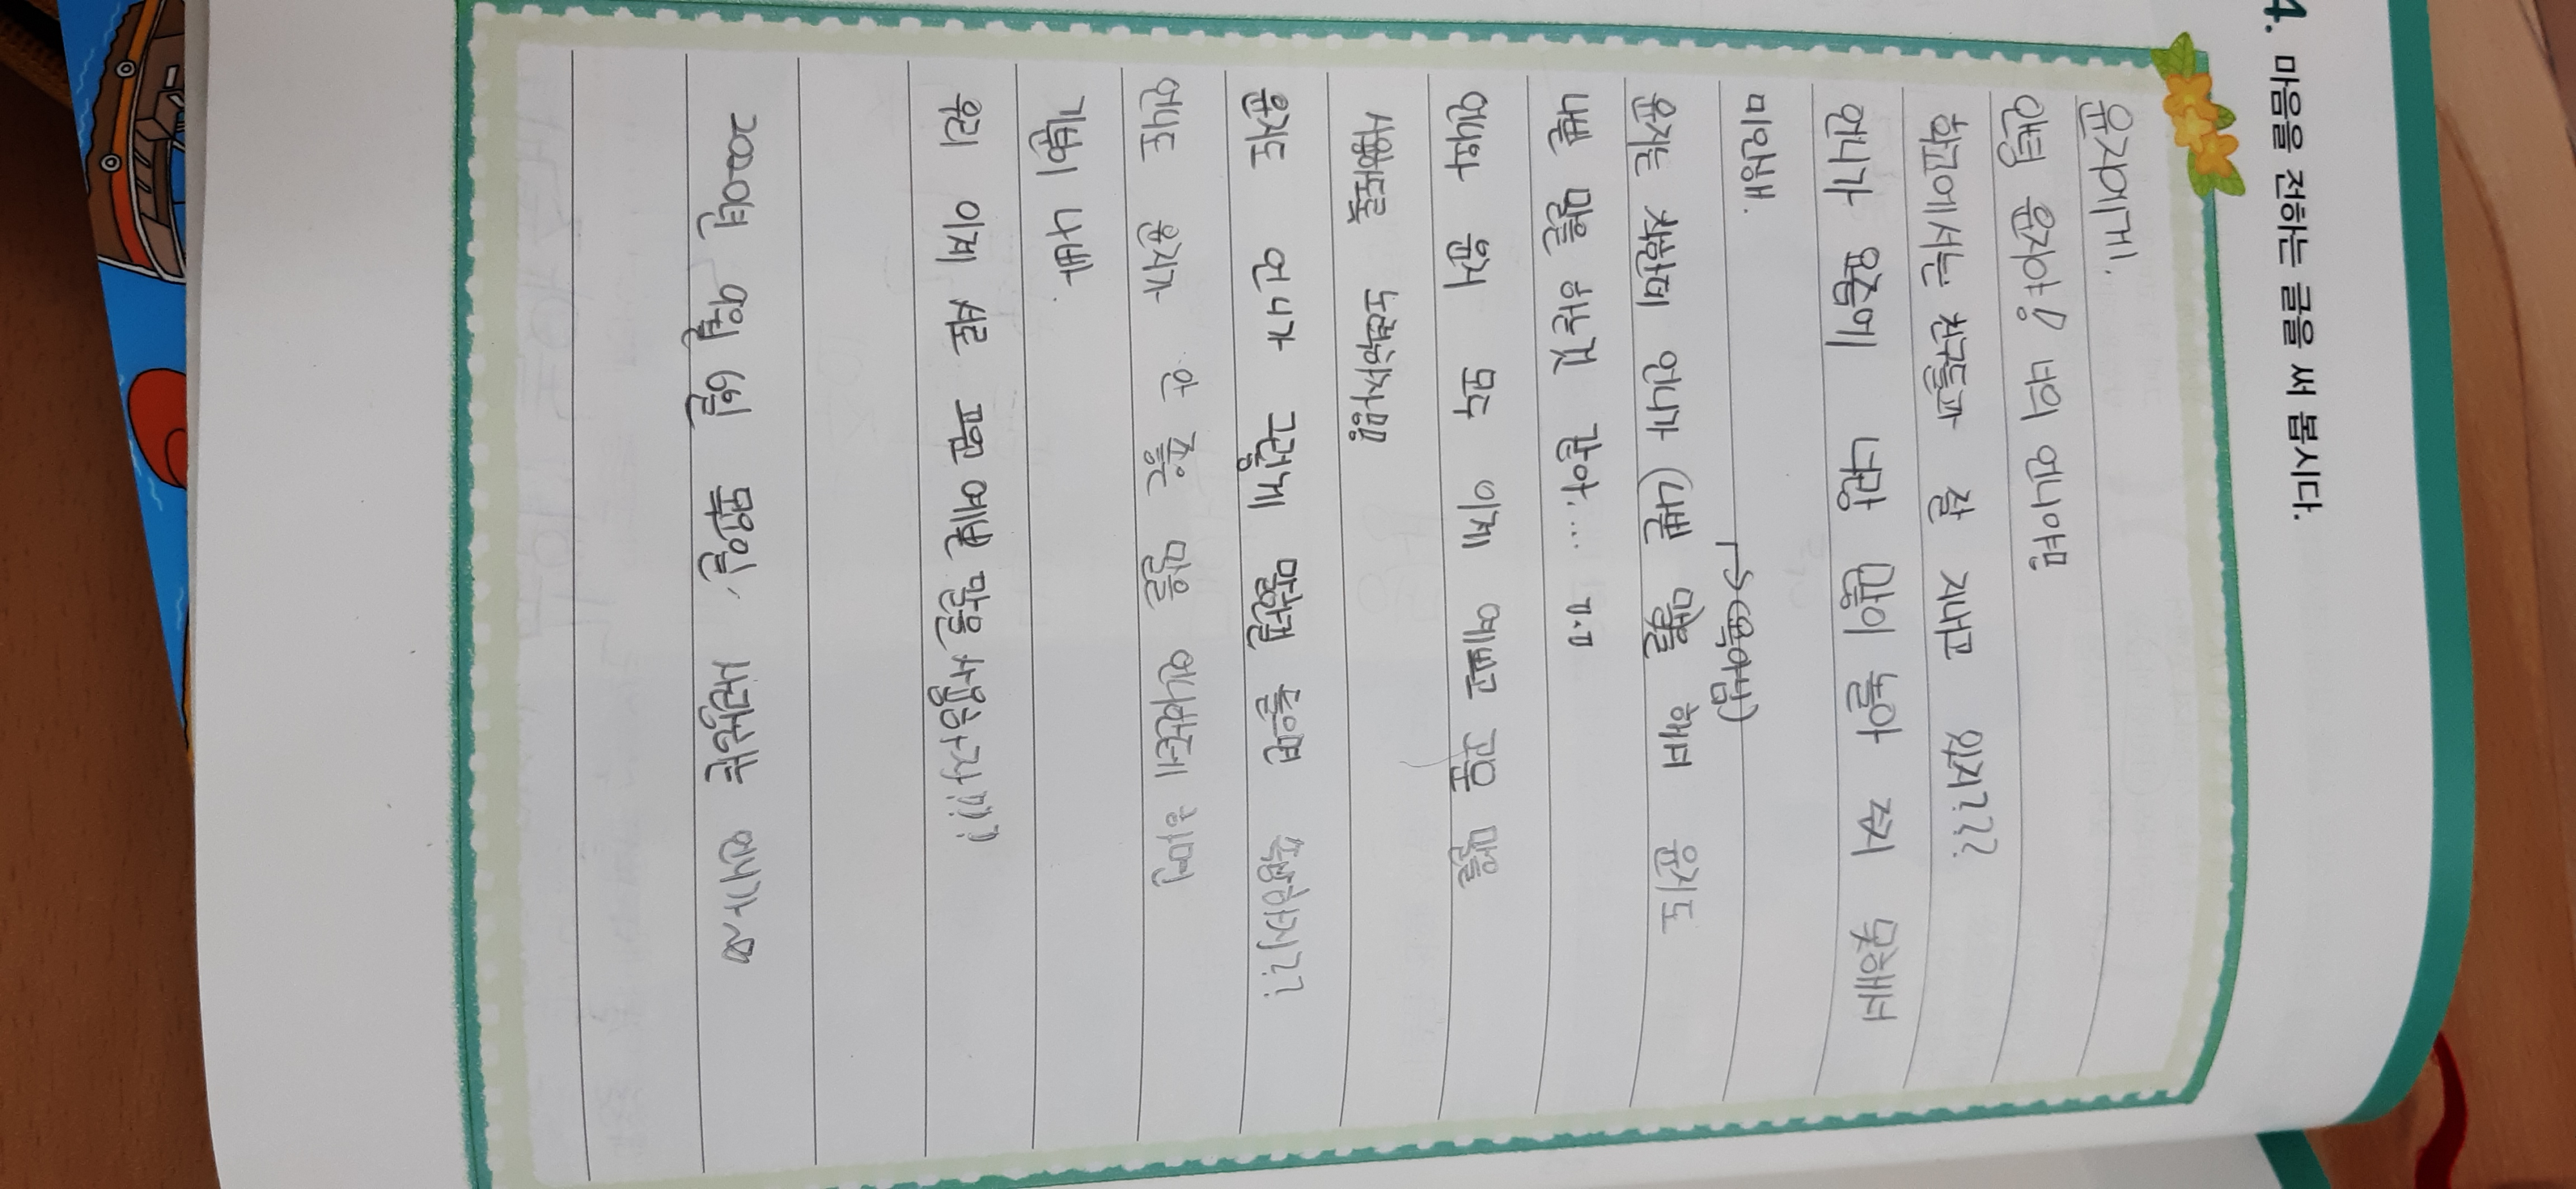 4. 마음을 전하는 글을 써 봅시다.
윤지에게.
안녕 윤지야! 너의 언니야
학교에서는 친구들과 잘 지내고 있지???
언니가 요즘에 너랑 많이 놀아 주지 못해서
미안해.
윤지는 착한데 언니가 (나쁜 말을 해서 윤지도
나쁜 말을 하는것 같아.... ㅠ.ㅠ
언니와 윤지 모두 이제 예쁘고 고운 말을
사용하도록 노력하자
윤지도 언니가 그렇게 말한걸 들으면 속상하지??
언니도 윤지가 안 좋은 말을 언니한테 하면
기분이 나빠.
우리 이제 서로 고운 예쁜 말을 사용하자!!!!
2022년 9월 6일 목요일, 언니가